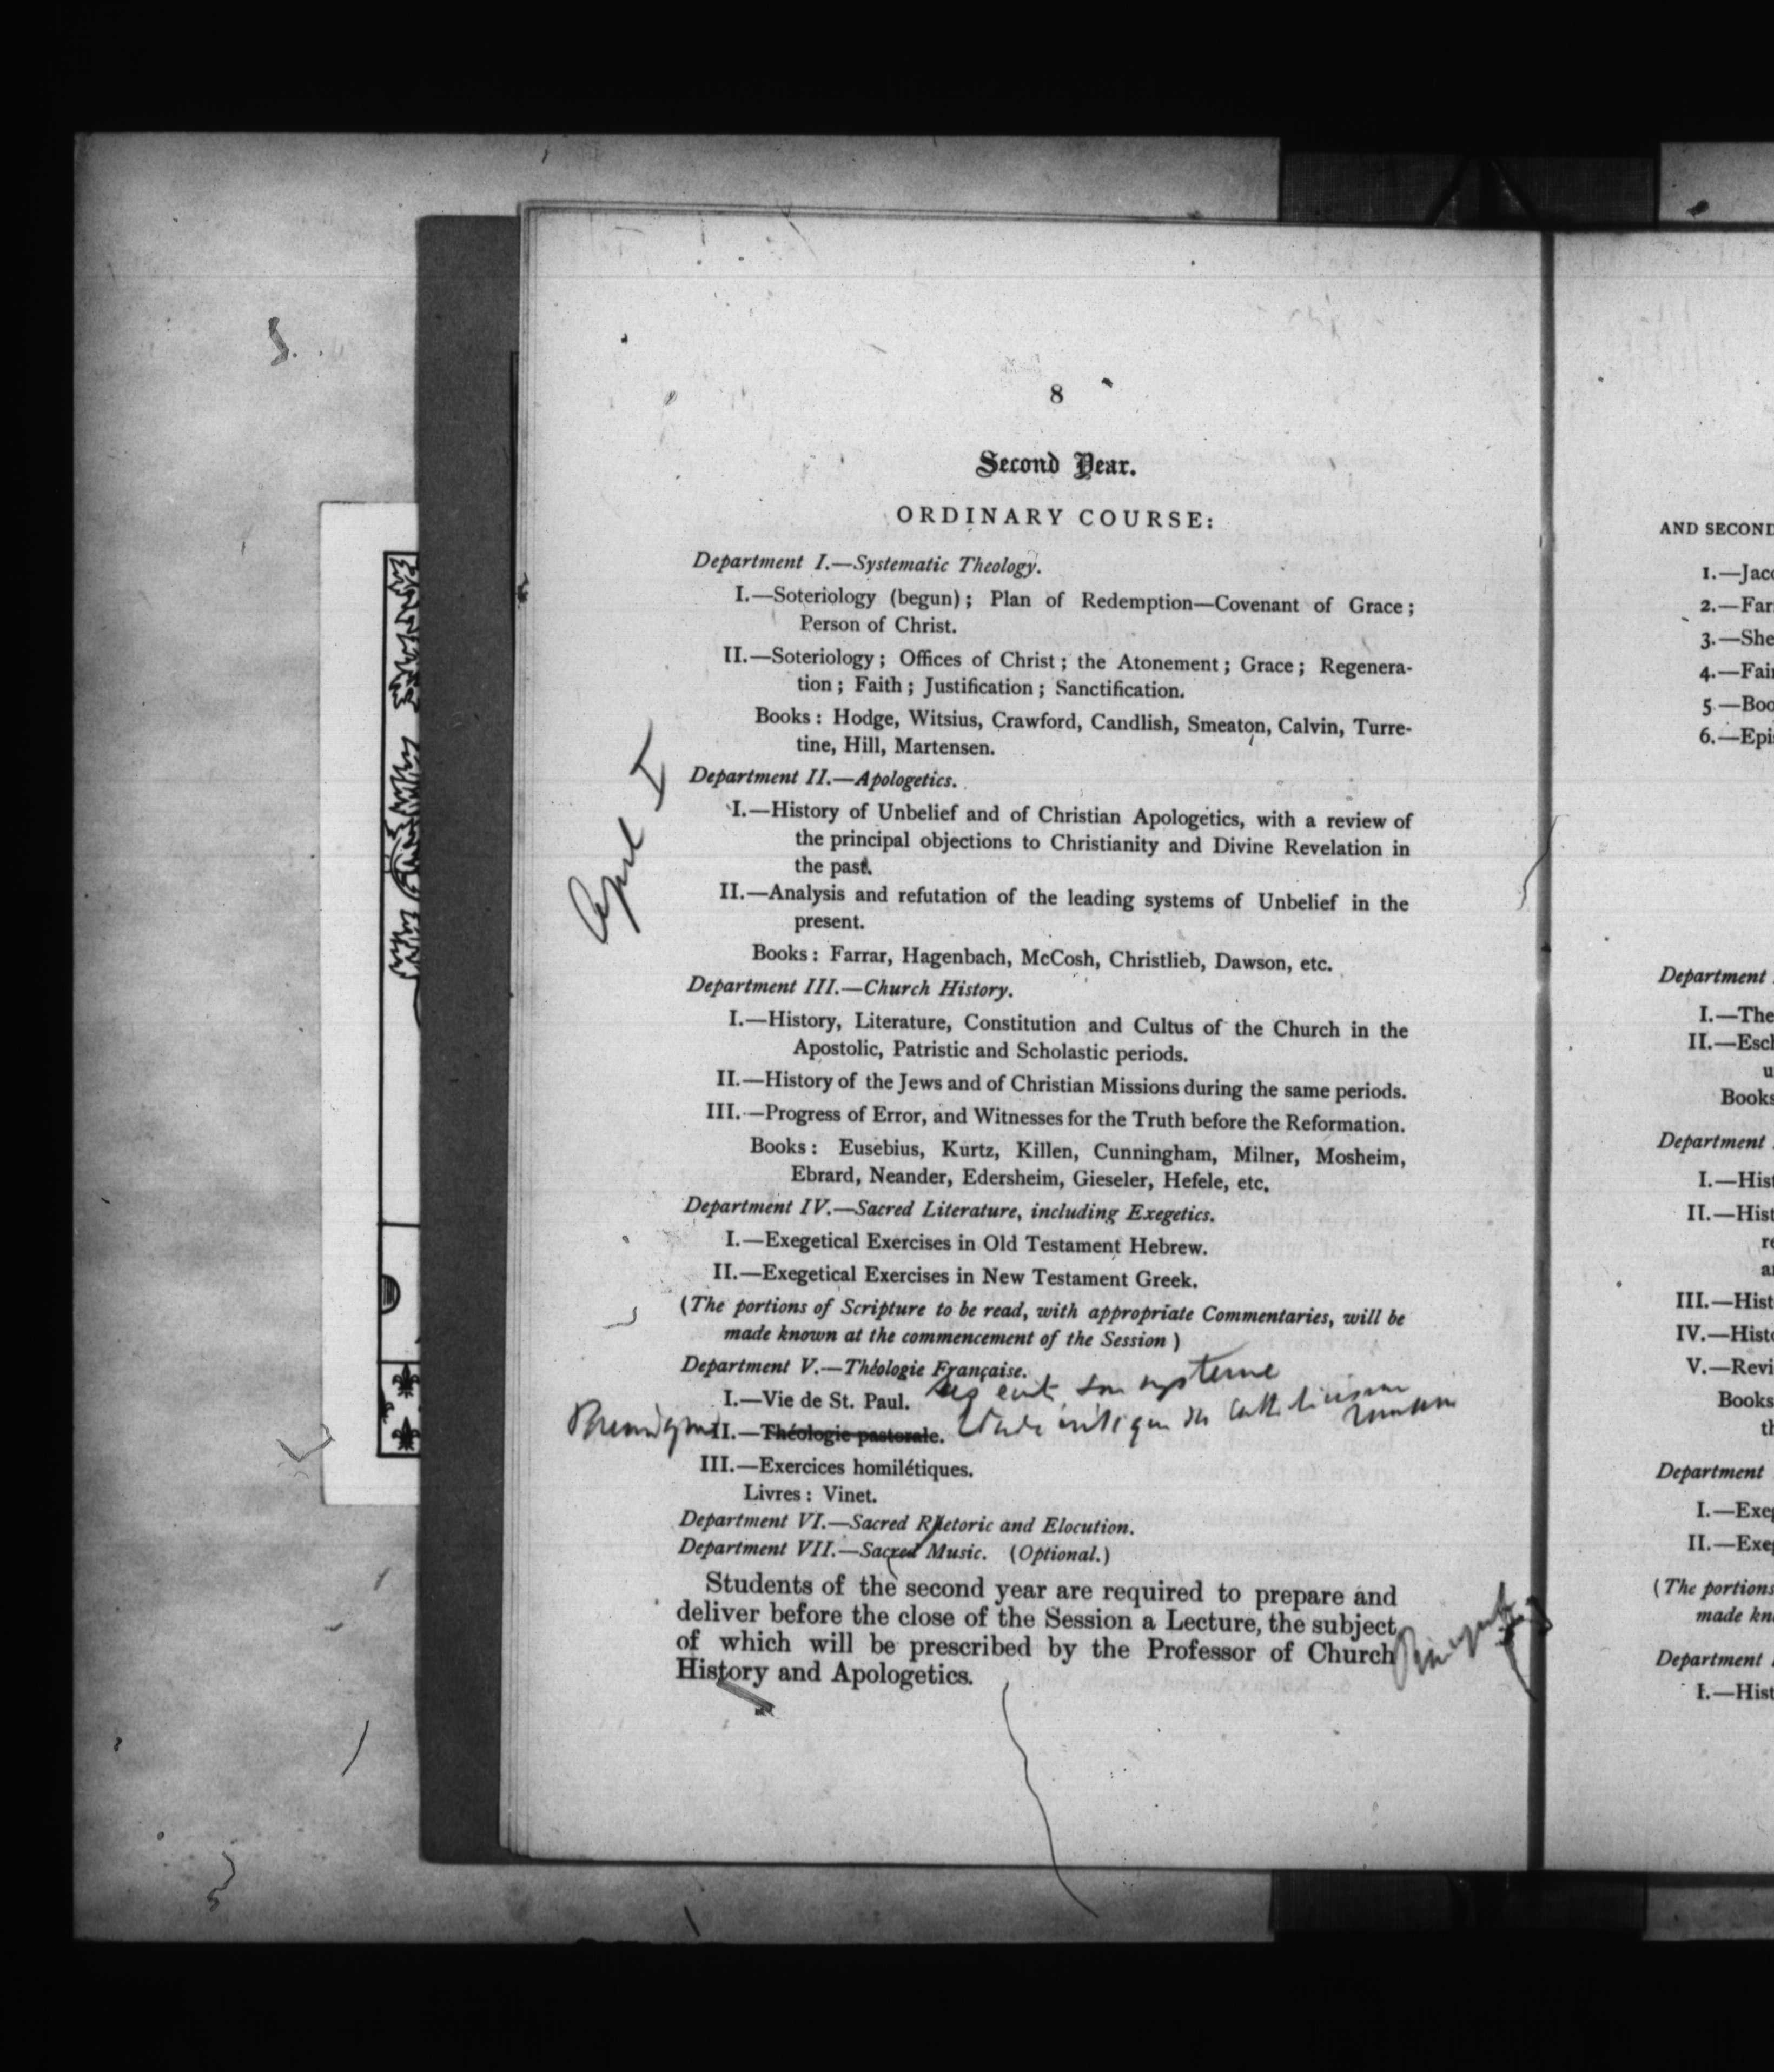 8
Second Year.
ORDINARY COURSE:
Department I.—Systematic Theology.
I.—Soteriology (begun); Plan of Redemption—Covenant of Grace;
Person of Christ.
II.—Soteriology; Offices of Christ; the Atonement; Grace; Regenera-
tion; Faith; Justification; Sanctification.
Books: Hodge, Witsius, Crawford, Candlish, Smeaton, Calvin, Turre-
tine, Hill, Martensen.
Department II.—Apologetics.
I.—History of Unbelief and of Christian Apologetics, with a review of
the principal objections to Christianity and Divine Revelation in
the past.
II.—Analysis and refutation of the leading systems of Unbelief in the
present.
Books: Farrar, Hagenbach, McCosh, Christlieb, Dawson, etc.
Department III.—Church History.
I.—History, Literature, Constitution and Cultus of the Church in the
Apostolic, Patristic and Scholastic periods.
II.—History of the Jews and of Christian Missions during the same periods.
III.—Progress of Error, and Witnesses for the Truth before the Reformation.
Books: Eusebius, Kurtz, Killen, Cunningham, Milner, Mosheim,
Ebrard, Neander, Edersheim, Gieseler, Hefele, etc.
Department IV.—Sacred Literature, including Exegetics.
I.—Exegetical Exercises in Old Testament Hebrew.
II.—Exegetical Exercises in New Testament Greek.
(The portions of Scripture to be read, with appropriate Commentaries, will be
made known at the commencement of the Session)
Department V.—Théologie Française.
I.—Vie de St. Paul. son systeme
II.—Théologie pastorale.
III.—Exercices homilétiques.
Livres: Vinet.
Department VI.—Sacred Rhetoric and Elocution.
Department VII.—Sacred Music. (Optional.)
Students of the second year are required to prepare and
deliver before the close of the Session a Lecture, the subject
of which will be prescribed by the Professor of Church
History and Apologetics.
AND SECOND
1.—Jac
2.—Far
3.—She
4.—Fai
5.—Boo
6.—Epi
Department
I.—The
II.—Esc
Books
Department
I.—Hist
II.—Hist
III.—Hist
IV.—Hist
V.—Revi
Books
Department
I.—Exe
II.—Exe
(The portions
made kn
Department
I.—Hist